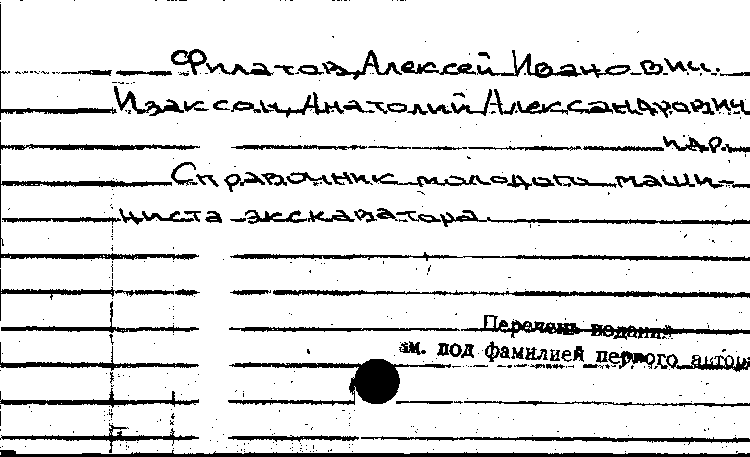 Филатов, Алексей Иванович.
Изаксон, Анатолий Александрович
и др.
Справочник молодого маши-
ниста экскаватора.
Перечень изданий
см. под фамилией первого автора